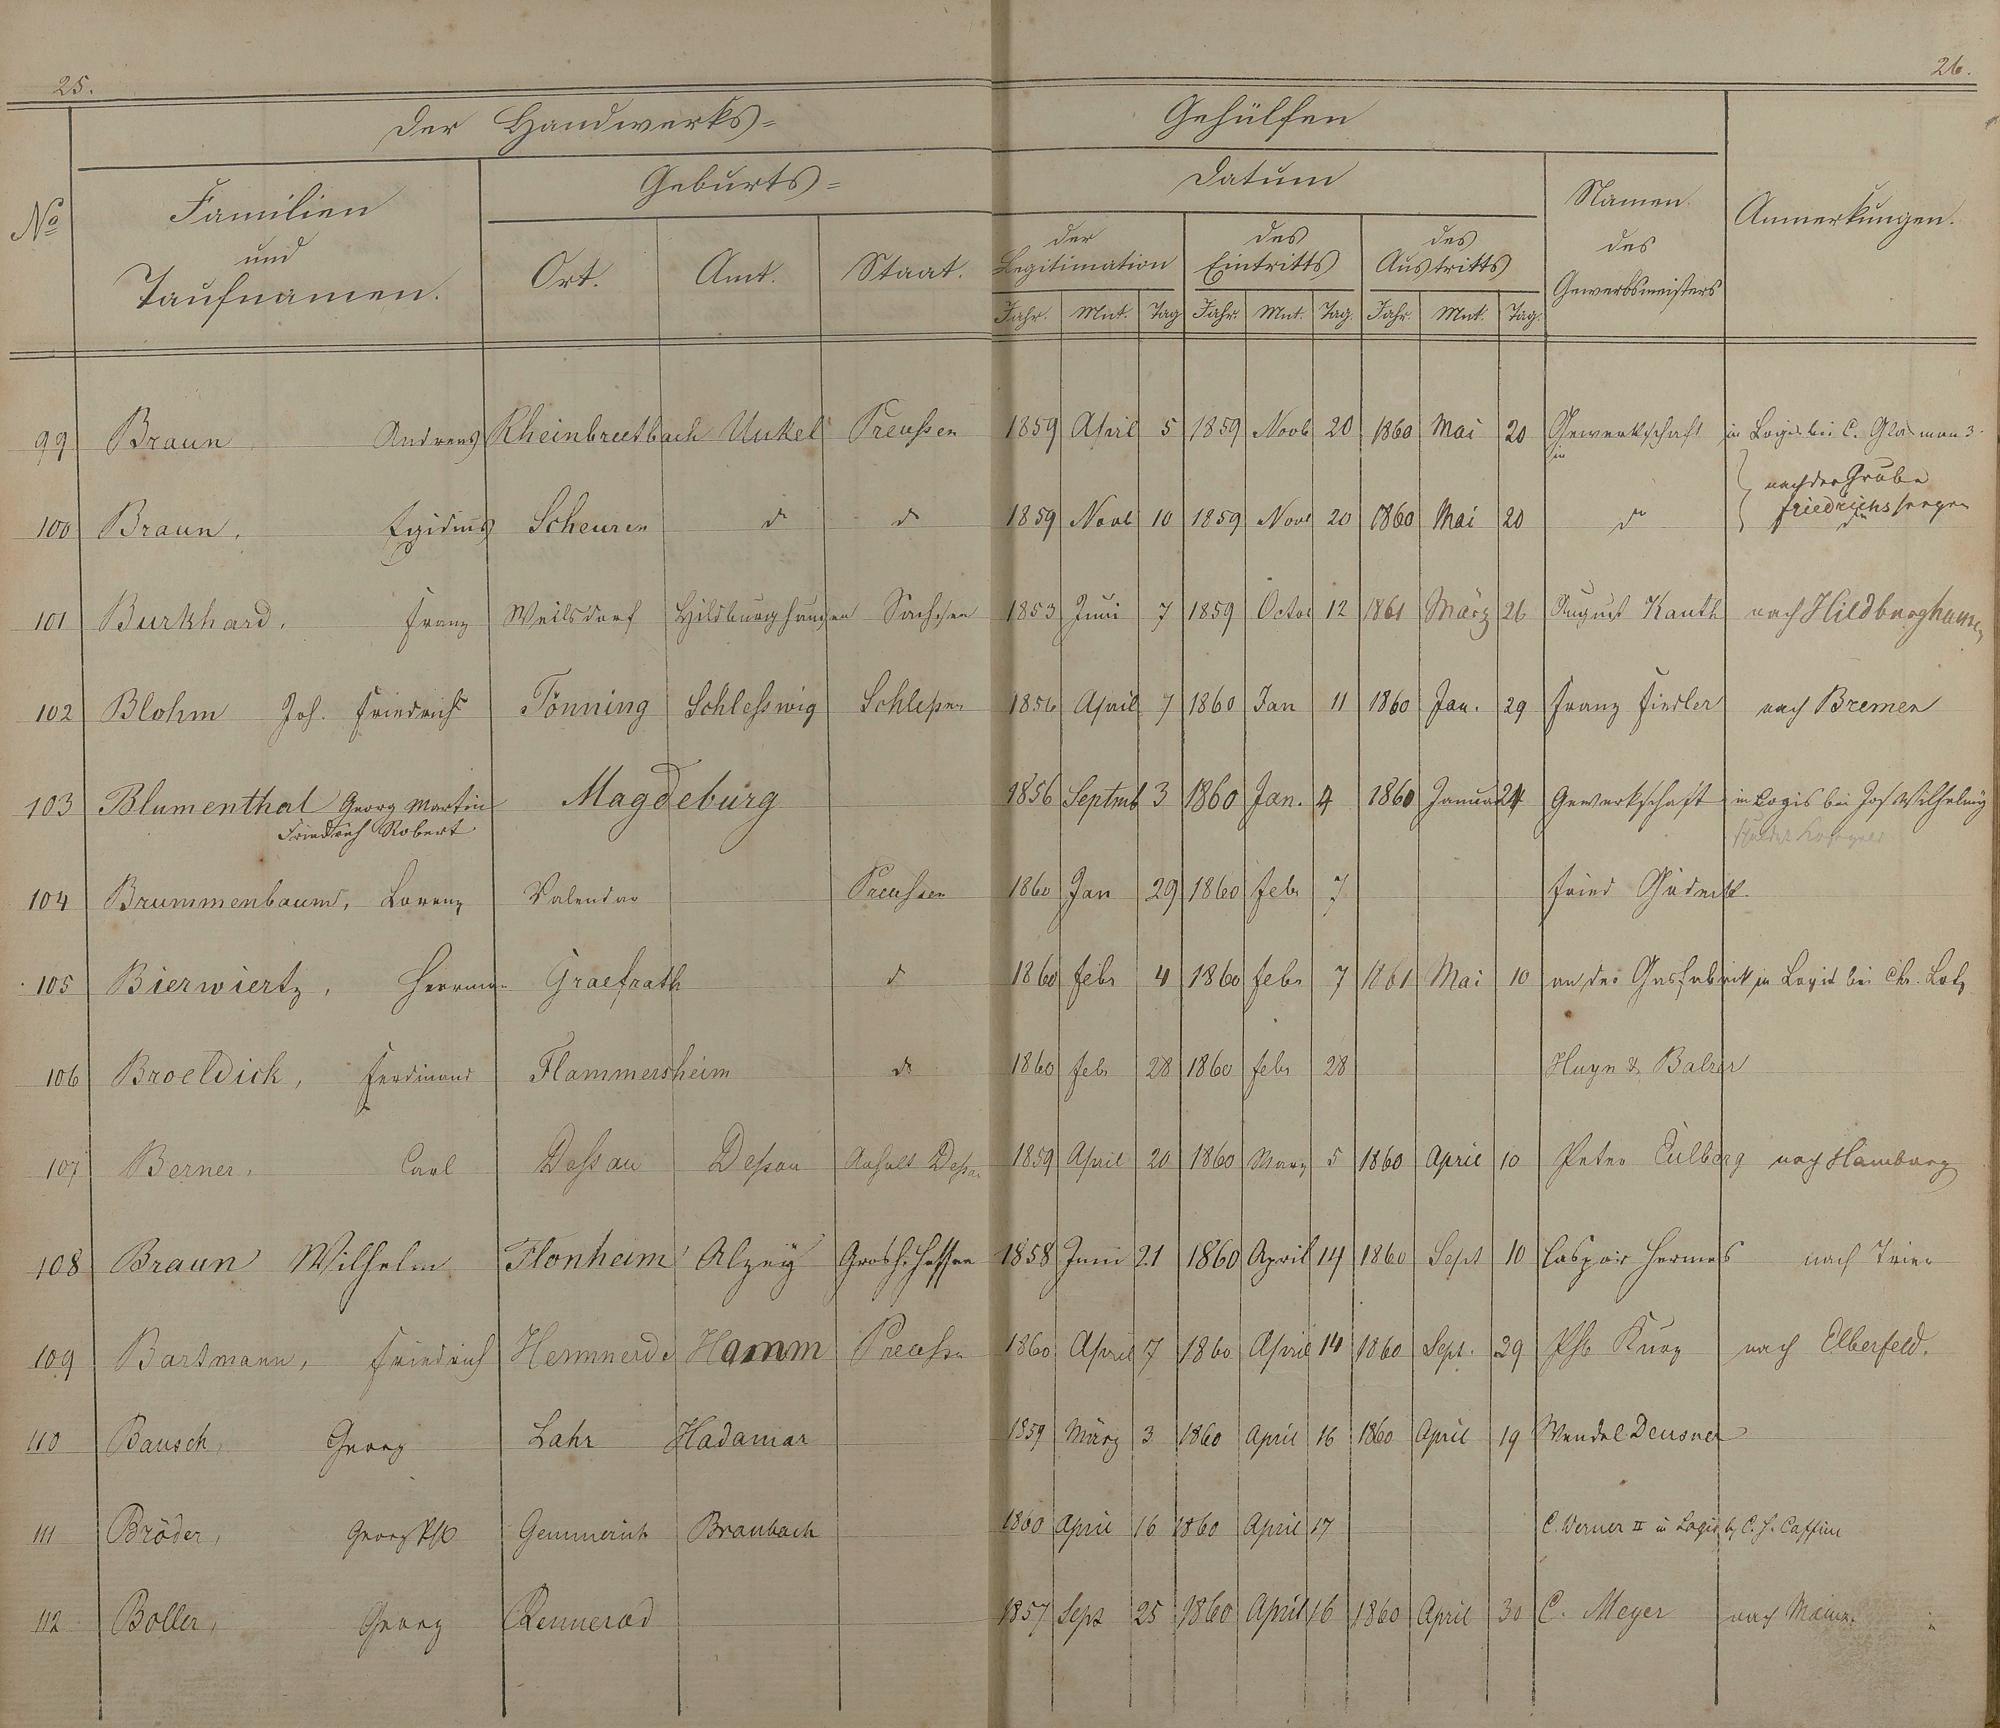 25.
26.
Der Handwerks= Gehülfen
No
Familien
und
Taufnamen.
Geburts=
Ort. Amt. Staat.
Datum
der Legitimation
des Eintritts
des Austritts
Jahr. Mnt. Tag Jahr. Mnt. Tag. Jahr. Mnt. Tag.
Namen
des
Gewerbsmeisters
Anmerkungen.
99 Braun Andreas Rheinbreitbach Unkel Preussen 1859 April 5 1859 Novb 20 1860 Mai 20 Gewerkschaft in Logis bei C.
nach der Grube
Friedrichssegen
100 Braun, Egidius Scheuren do do 1859 Novb 10 1859 Novb 20 1860 Mai 20 do
101 Burkhard, Franz Weilsdorf Hildburghausen Sachsen 1853 Juni 7 1859 Octob 12 1861 März 26 August Kauth nach Hildburghausen
102 Blohm Joh. Friedrich Tönning Schlesswig 1856 April 7 1860 Jan 11 1860 Jan. 29 Franz Fiedler nach Bremen
103 Blumenthal Georg Martin Magdeburg 1856 Septmb 3 1860 Jan. 4 1860 Januar 24 Gewerkschaft in Logis bei Jos Wilhelmy
Friedrich Robert
104 Brummenbaum, Lorenz Valendar Preussen 1860 Jan 29 1860 Febr 7 Fried
105 Bierwiertz, Herrman Graefrath do 1860 Febr 4 1860 Febr 7 1861 Mai 10 an der Gasfabrik in Logis bei Chr. Lotz
106 Broeldick, Ferdinand Flammersheim do 1860 Febr 28 1860 Febr 28 Huyn & Balzer
107 Berner, Carl Dessau Dessau Anhalt Dessau 1859 April 20 1860 Marz 5 1860 April 10 Peter Eulberg nach Hamburg
108 Braun Wilhelm Flonheim Alzey Grosh. Hessen 1858 Juni 21 1860 April 14 1860 Sept 10 Caspar Hermes nach Trier
109 Bartmann, Friedrich Hemmerde Hamm Preussen 1860 April 7 1860 April 14 1860 Sept. 29 Phl Kurz nach Elberfeld.
110 Bausch, Georg Lahr Hadamar 1859 März 3 1860 April 16 1860 April 19 Wendel Deusner
111 Bröder, Georg Phl Gemmerich Braubach 1860 April 16 1860 April 17 C. Werner II in Logis b. C. H.
112 Boller, Georg Rennerod 1857 Sept 25 1860 April 16 1860 April 30 C. Meyer nach Mainz.